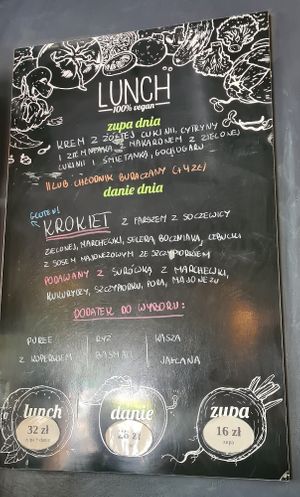 LUNCH
100% vegan
zupa dnia
KREM Z ŻÓŁTEJ CUKINII, CYTRYNY
I ZIEMNIAKA Z MAKARONEM Z ZIELONEJ
CUKINII I ŚMIETANKĄ, GOCHUGARU
LUB CHŁODNIK BURACZANY (+4ZŁ)
danie dnia
GLUTEN!
KROKIET Z FARSZEM Z SOCZEWICY
ZIELONEJ, MARCHEWKI, SELERA, BOCZNIAKA, CEBULKI
Z SOSEM MAJONEZOWYM ZE SZCZYPIORKIEM
PODAWANY Z SURÓWKĄ Z MARCHEWKI,
KUKURYDZY, SZCZYPIORKU, PORA, MAJONEZU
DODATEK DO WYBORU:
PUREE RYŻ KASZA
Z KOPERKIEM BASMATI JAGLANA
lunch danie zupa
32 zł 26 zł 16 zł
zupa